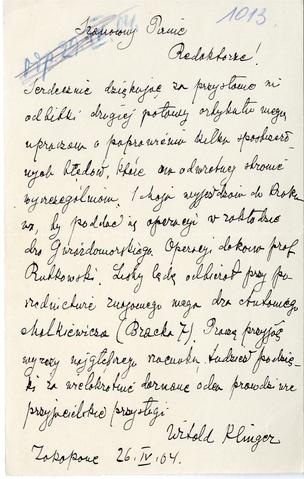 1013
Szanowny Panie
Redaktorze!
Serdecznie dziękując za przysłane mi
odbitki drugiej połowy artykułu mego
upraszam o poprawienie kilku spostrzeżo-
nych błędów, które na odwrotnej stronie
wyszczególniam. 1 maja wyjeżdżam do Krako-
wa, by poddać się operacji w zakładzie
dra Gwiazdomorskiego. Operacji dokona prof.
Rutkowski. Listy będę odbierał przy po-
średnictwie znajomego mego dra Antoniego
Małkiewicza (Bracka 7). Proszę przyjąć
wyrazy najgłębszego szacunku, tudzież podzię-
ki za wielokrotnie doznane odeń prawdziwie
przyjacielskie przysługi
Witold Klinger
Zakopane 26.IV.04.